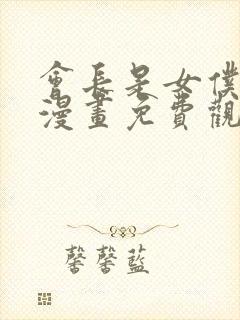 會長是女僕
漫畫免費觀
馨馨藍